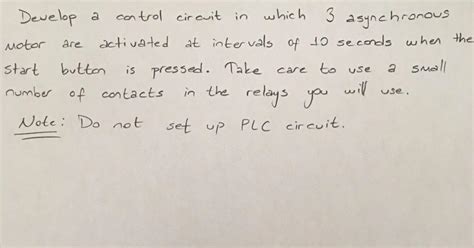 Develop a control circuit in which 3 asynchronous
Motor are activated at intervals of 10 seconds when the
start button is pressed. Take care to use a small
number of contacts in the relays you will use.
Note: Do not set up PLC circuit.